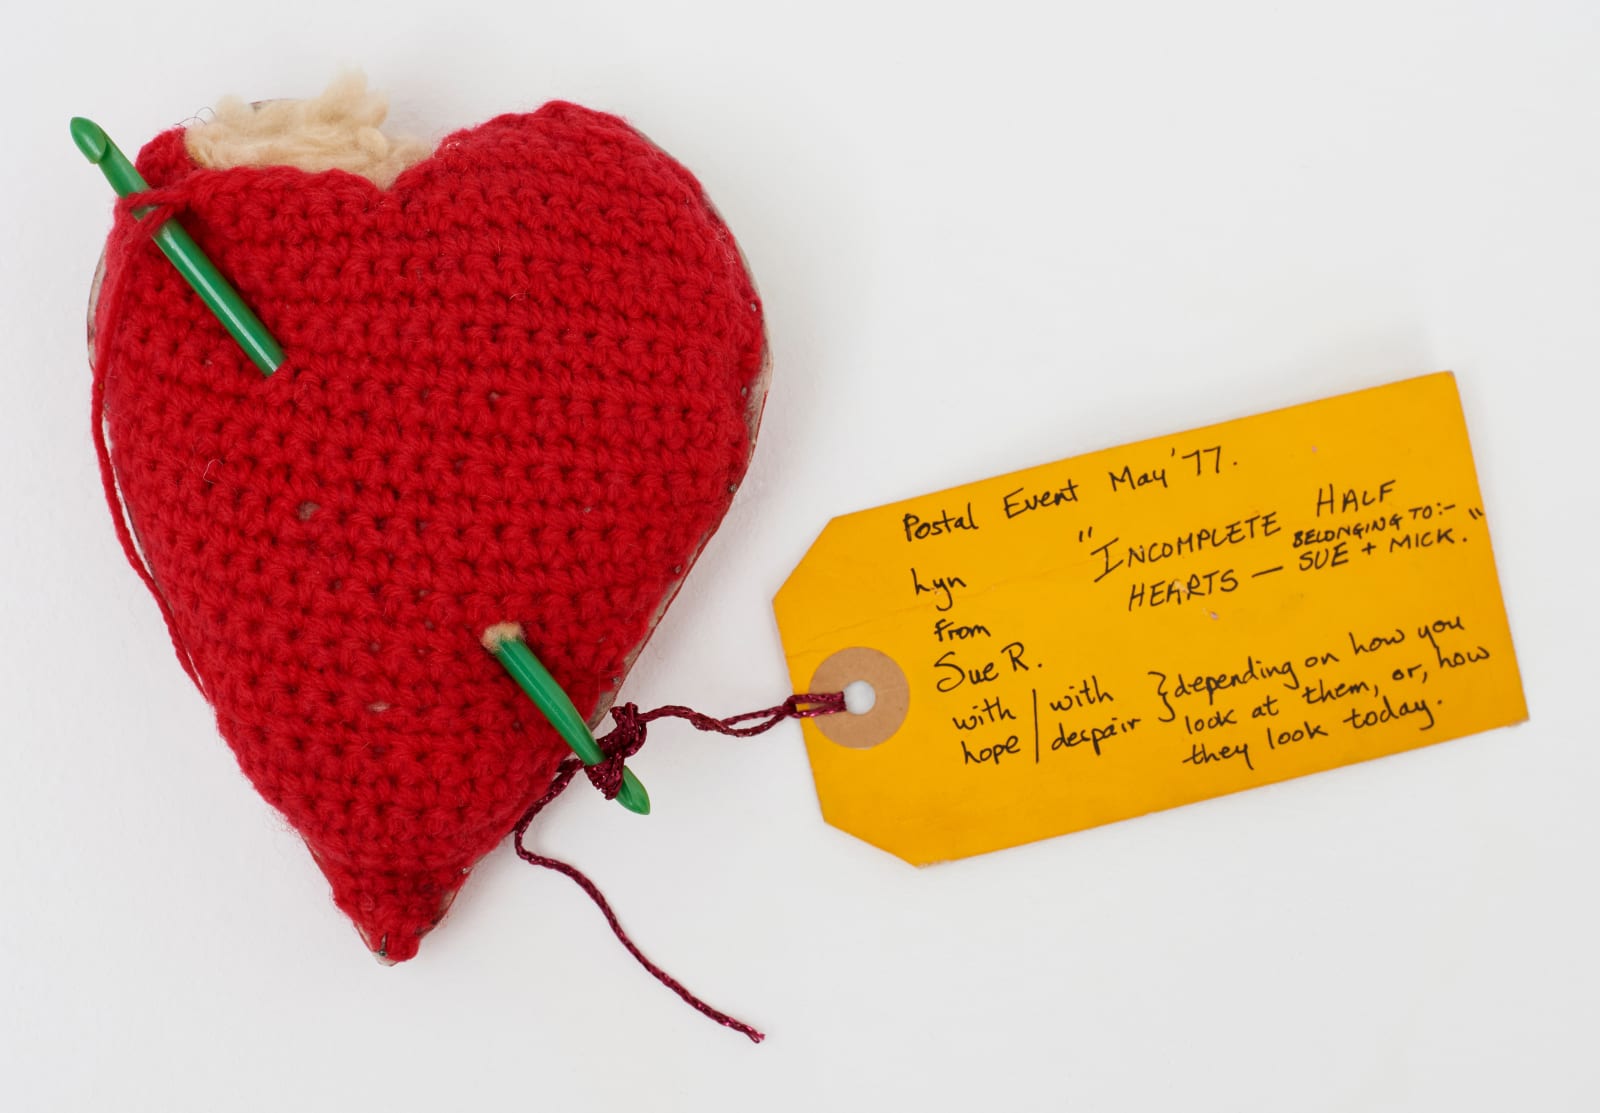 Postal Event May '77.
"INCOMPLETE HALF
HEARTS — BELONGING TO:- SUE + MICK."
Lyn
from
Sue R.
with hope / with despair } depending on how you
look at them, or, how
they look today.